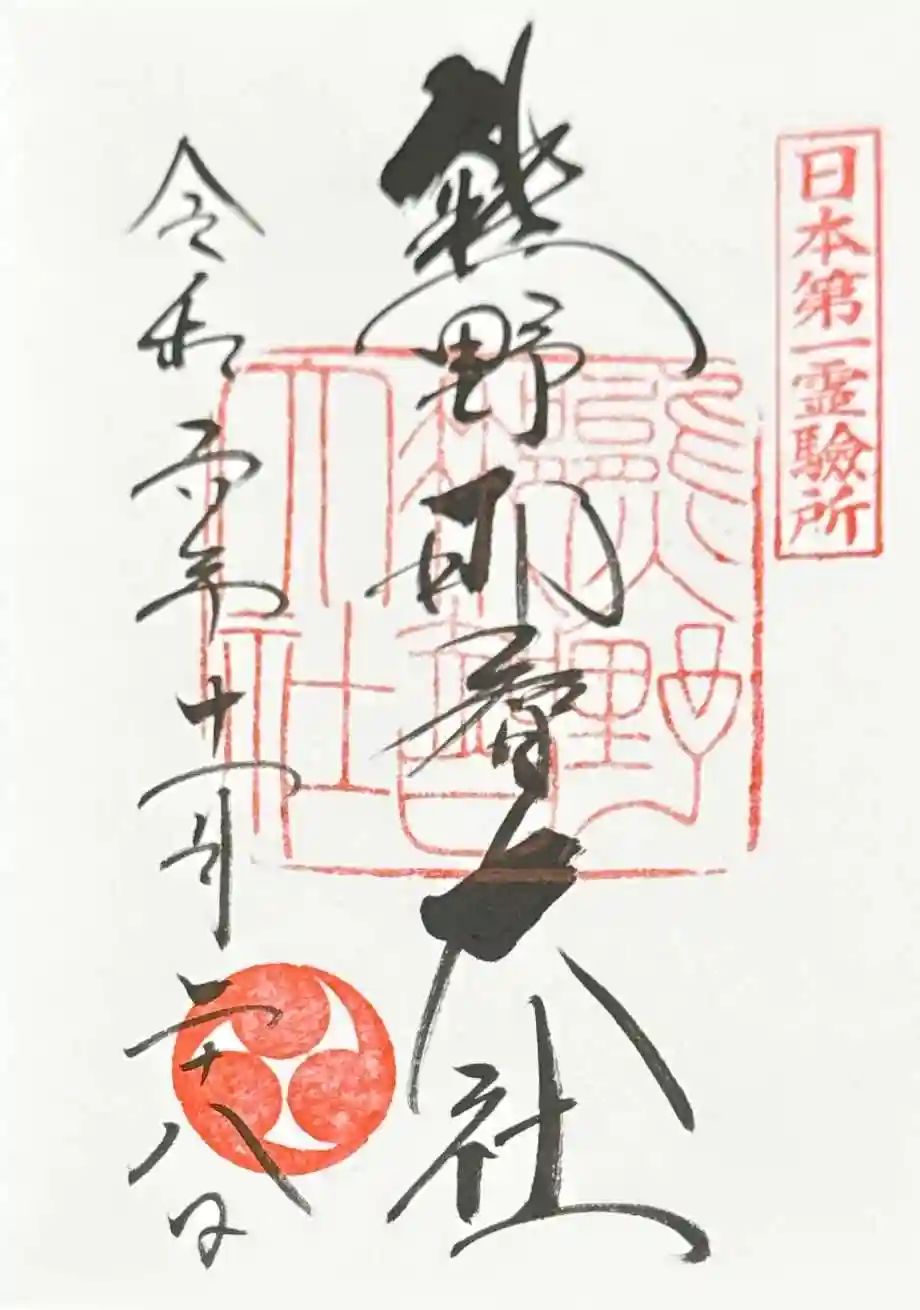 日本第一霊驗所
熊野那智大社
熊野
那智
大社
令和 年十一月二十八日